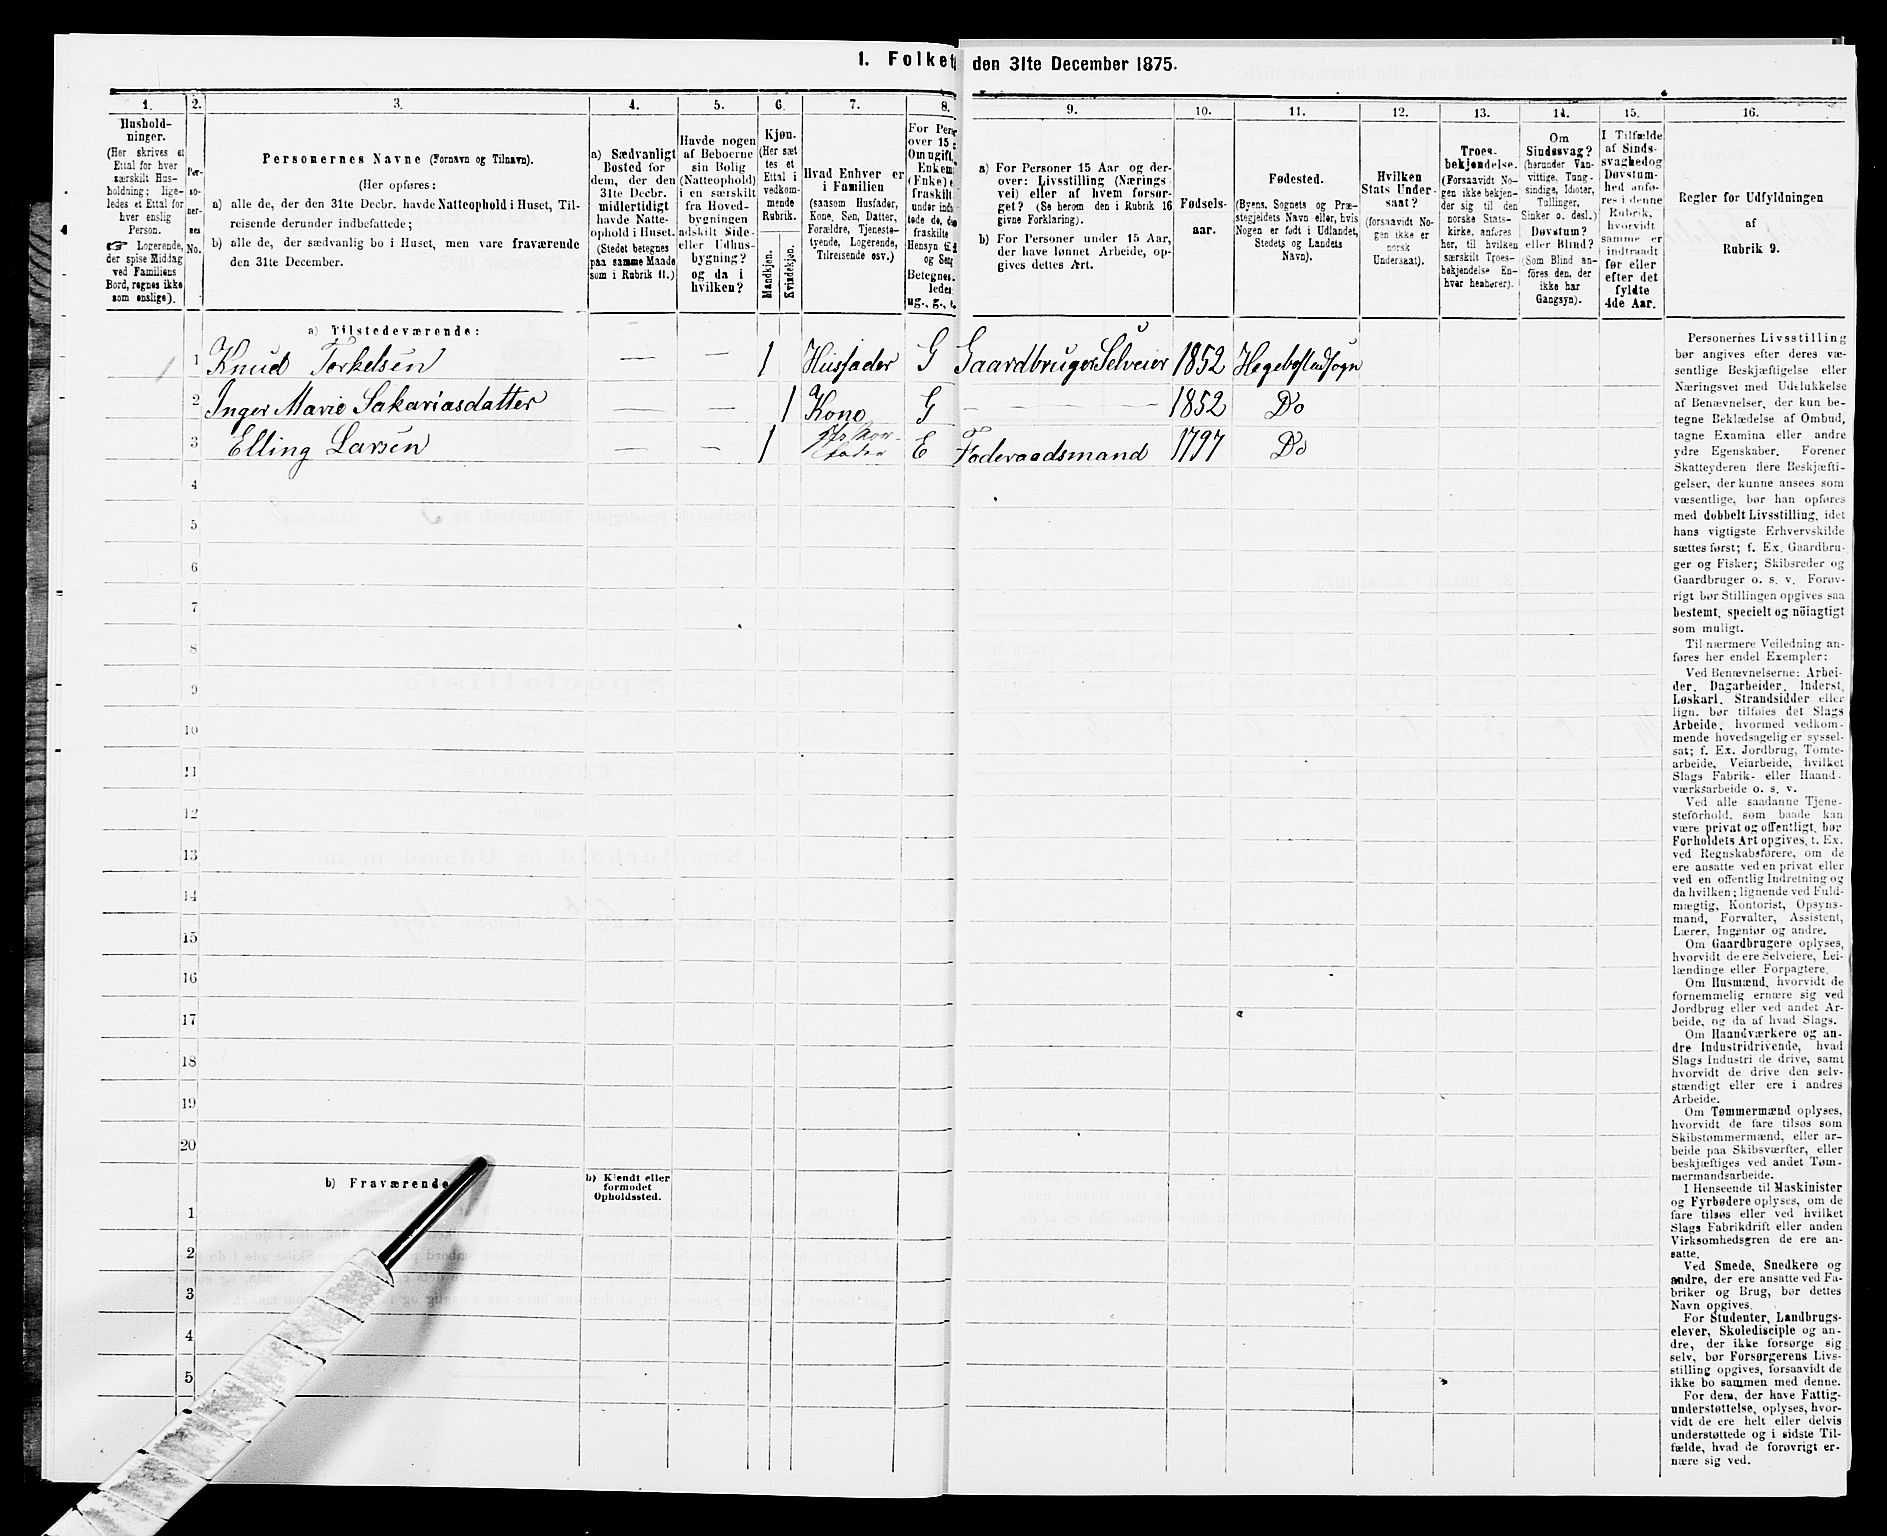 1. Folket
den 31te December 1875.
1.
2.
3.
4.
5.
6.
7.
8.
9.
10.
11.
12.
13.
14.
15.
16.
Hushold-
ninger.
(Her skrives et
Ettal for hver
særskilt Hus-
holdning; lige-
ledes et Ettal for
hver enslig
Person.
☞ Logerende,
der spise Middag
ved Familiens
Bord, regnes ikke
som enslige).
Per-
so-
ner-
nes
No.
Personernes Navne (Fornavn og Tilnavn).
(Her opføres:
a) alle de, der den 31te Decbr. havde Natteophold i Huset, Til-
reisende derunder indbefattede;
b) alle de, der sædvanlig bo i Huset, men vare fraværende
den 31te December.
a) Sædvanligt
Bosted for
dem, der den
31te Decbr.
midlertidigt
havde Natte-
ophold i Huset.
(Stedet betegnes
paa samme Maade
som i Rubrik 11.)
Havde nogen
af Beboerne
sin Bolig
(Natteophold)
i en særskilt
fra Hoved-
bygningen
adskilt Side-
eller Udhus-
bygning?
og da i
hvilken?
Kjøn.
(Her sæt
tes et
Ettal i
vedkom-
mende
Rubrik.
Mandkjøn.
Kvindekjøn.
Hvad Enhver er
i Familien
(saasom Husfader,
Kone, Søn, Datter,
Forældre, Tjeneste-
tyende, Logerende,
Tilreisende osv.)
For Pers
over 15
Om ugift,
Enkem
(Enke)
fraskilt
under inds
tede de, de
fraskilte
Hensyn til
og Seng
Betegnes
ledes
ug., g., e.
a) For Personer 15 Aar og der-
over: Livsstilling (Nærings-
vei) eller af hvem forsør-
get? (Se herom den i Rubrik 16
givne Forklaring).
b) For Personer under 15 Aar,
der have lønnet Arbeide, op-
gives dettes Art.
Fødsels-
aar.
Fødested.
(Byens, Sognets og Præ-
stegjeldets Navn eller, hvis
Nogen er født i Udlandet,
Stedets og Landets
Navn).
Hvilken
Stats Under-
saat?
(forsaavidt No-
gen ikke er
norsk
Undersaat).
Troes-
bekjendelse.
(Forsaavidt No-
gen ikke bekjen-
der sig til den
norske Stats-
kirke, anføres
her, til hvilken
særskilt Troes-
bekjendelse En-
hver henhører).
Om
Sindssvag?
(herunder Van-
vittige, Tung-
sindige, Idioter,
Tullinger,
Sinker o. desl.)
Døvstum?
eller Blind?
(Som Blind an-
føres den, der
ikke har
Gangsyn).
I Tilfælde
af Sinds-
svaghed og
Døvstum-
hed anfø-
res i denne
Rubrik,
hvorvidt
samme er
indtraadt
før eller
efter det
fyldte
4de Aar.
Regler for Udfyldningen
af
Rubrik 9.
a) Tilstedeværende:
1 1 Knud Torkelsen — — 1 Husfader G Gaardbruger Selveier 1852 Hegebostadsogn
2 Inger Marie Sakariasdatter — — 1 Kone G — — — 1852 Do
3 Elling Larsen — — 1 E Foderaadsmand 1797 Do
4
5
6
7
8
9
10
11
12
13
14
15
16
17
18
19
20
b) Fraværende
b) Kjendt eller
formodet
Opholdssted.
1
2
3
4
5
Personernes Livsstilling
bør angives efter deres væ-
sentlige Beskjæftigelse eller
Næringsvei med Udelukkelse
af Benævnelser, der kun be-
tegne Beklædelse af Ombud,
tagne Examina eller andre
ydre Egenskaber. Forener
Skatteyderen flere Beskjæfti-
gelser, der kunne ansees som
væsentlige, bør han opføres
med dobbelt Livsstilling, idet
hans vigtigste Erhvervskilde
sættes først; f. Ex. Gaardbru-
ger og Fisker; Skibsreder og
Gaardbruger o. s. v. Forøv-
rigt bør Stillingen opgives saa
bestemt, specielt og nöiagtigt
som muligt.
Til nærmere Veiledning an-
føres her endel Exempler:
Ved Benævnelserne: Arbei-
der, Dagarbeider, Inderst,
Løskarl, Strandsidder eller
lign. bør tilføies det Slags
Arbeide, hvormed vedkom-
mende hovedsagelig er syssel-
sat; f. Ex. Jordbrug, Tomte-
arbeide, Veiarbeide, hvilket
Slags Fabrik- eller Haand-
værksarbeide o. s. v.
Ved alle saadanne Tjene-
steforhold, som baade kan
være privat og offentligt, bør
Forholdets Art opgives, t. Ex.
ved Regnskabsførere, om de
ere ansatte ved en privat eller
ved en offentlig Indretning og
da hvilken; lignende ved Fuld-
mægtig, Kontorist, Opsyns-
mand, Forvalter, Assistent,
Lærer, Ingeniør og andre.
Om Gaardbrugere oplyses,
hvorvidt de ere Selveiere, Lei-
lændinge eller Forpagtere.
Om Husmænd, hvorvidt de
fornemmelig ernære sig ved
Jordbrug eller ved andet Ar-
beide, og da af hvad Slags.
Om Haandværkere og an-
dre Industridrivende, hvad
Slags Industri de drive, samt
hvorvidt de drive den selv-
stændigt eller ere i andres
Arbeide.
Om Tømmermænd oplyses,
hvorvidt de fare tilsøs som
Skibstømmermænd, eller ar-
beide paa Skibsværfter, eller
beskjæftiges ved andet Tøm-
mermandsarbeide.
I Henseende til Maskinister
og Fyrbødere oplyses, om de
fare tilsøs eller ved hvilket
Slags Fabrikdrift eller anden
Virksomhedsgren de ere an-
satte.
Ved Smede, Snedkere og
andre, der ere ansatte ved Fa-
briker og Brug, bør dettes
Navn opgives.
For Studenter, Landbrugs-
elever, Skoledisciple og an-
dre, der ikke forsørge sig
selv, bør Forsørgerens Livs-
stilling opgives, forsaavidt de
ikke bo sammen med denne.
For dem, der have Fattig-
understøttelse, oplyses, hvor-
vidt de ere helt eller delvis
understøttede og i sidste Til-
fælde, hvad de forøvrigt er-
nære sig ved.